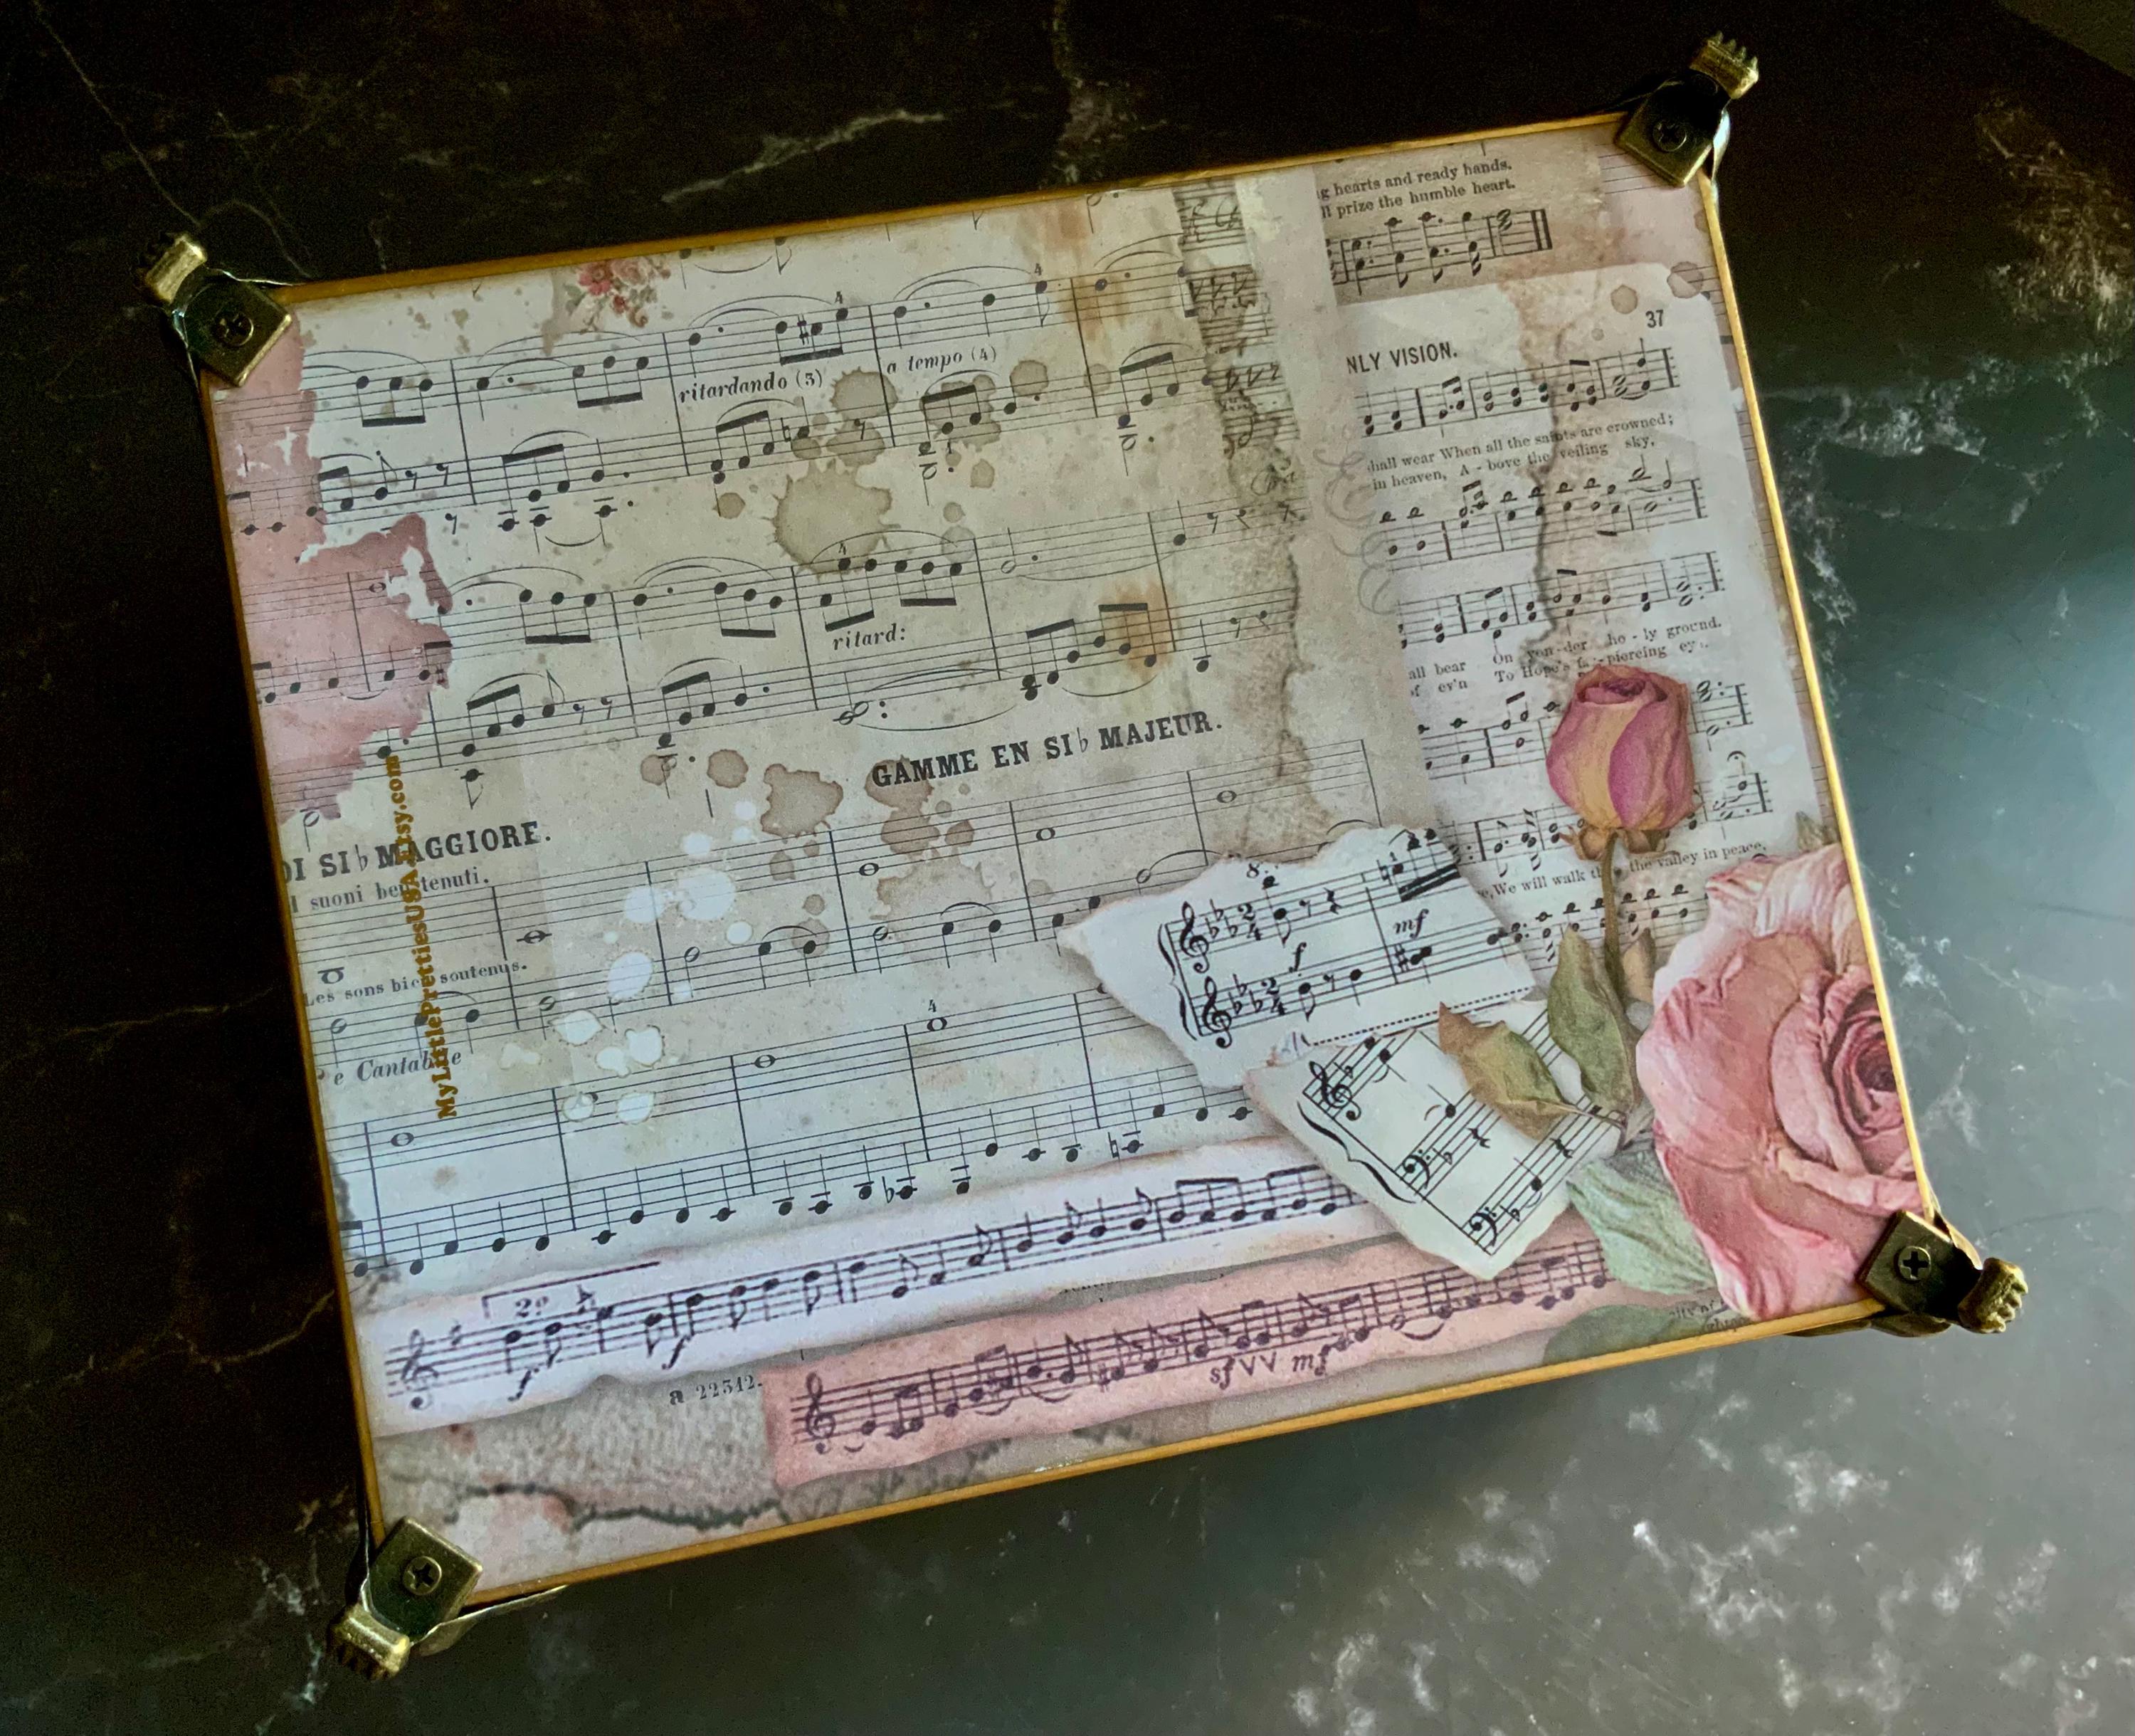 g hearts and ready hands.
ll prize the humble heart.
37
NLY VISION.
4
4
ritardando (3)
a tempo (4)
shall wear When all the saints are crowned;
in heaven, A - bove the veiling sky,
4
ritard:
all bear On yon-der ho - ly ground.
of ev'n To Hope's piercing
GAMME EN SI♭ MAJEUR.
DI SI♭ MAGGIORE.
I suoni ben tenuti.
Les sons bien soutenus.
e Cantabile
MyLittlePrettiesUSA.Etsy.com
We will walk the valley in peace,
8
2
4
f
mf
2
4
4
2º
f
f
a 22312.
sf VV mf